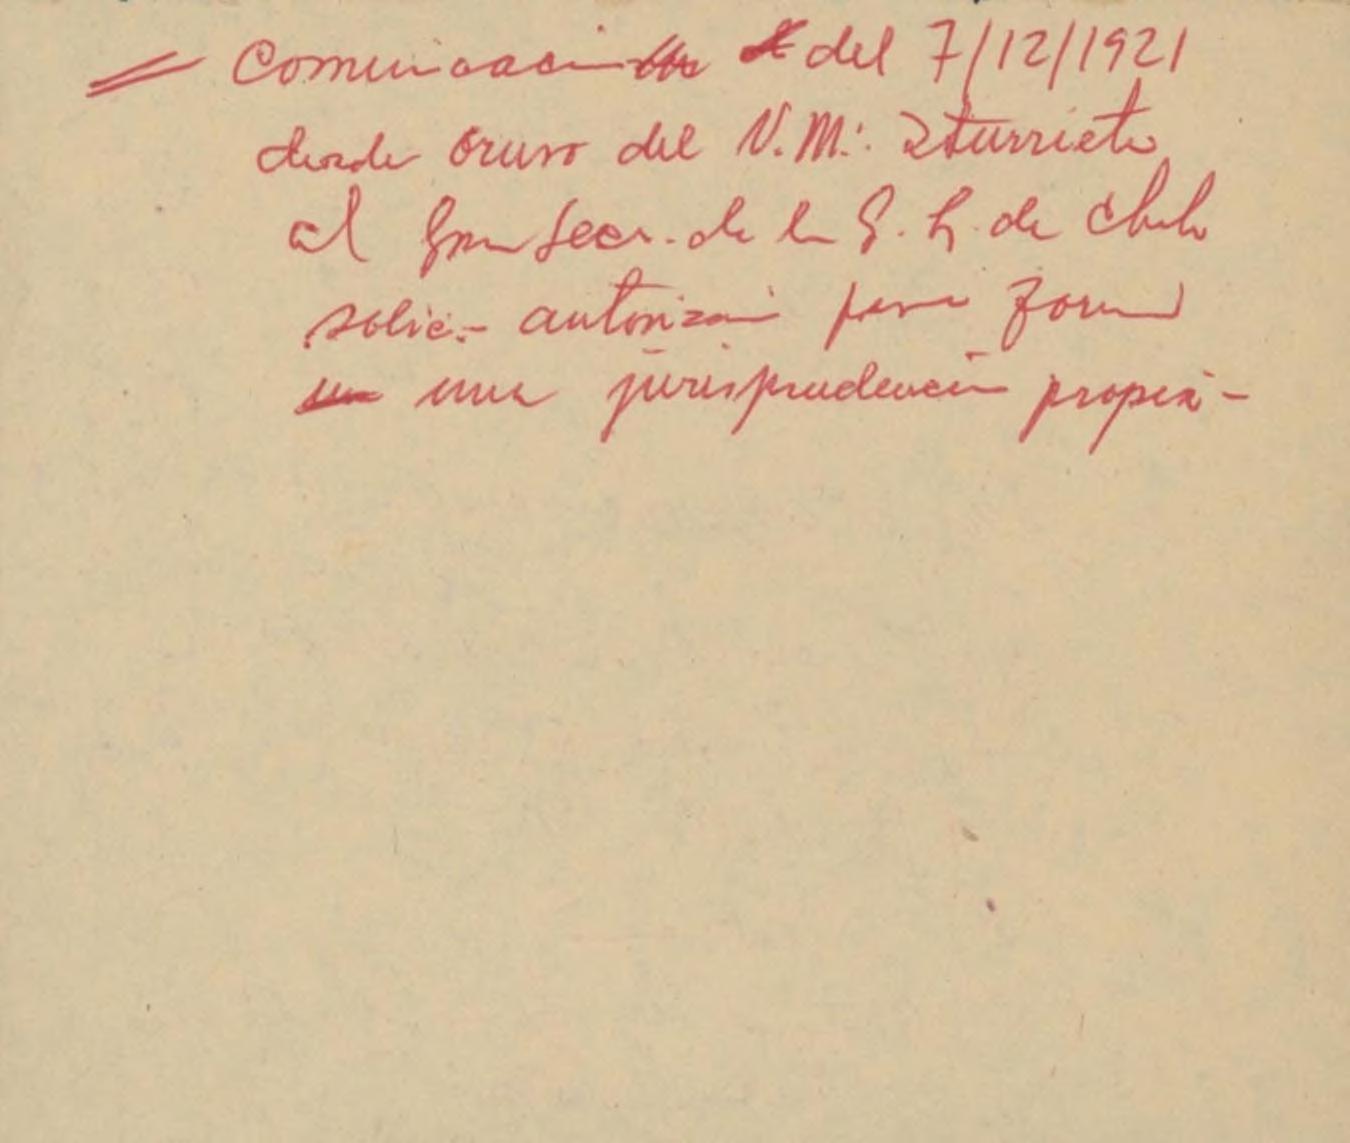 = Comunicación del 7/12/1921
desde Oruro del V.M∴ Iturrieta
al Gran Secr. de la G. L. de Chile
solic.- autorización para formar
una jurisprudencia propia -